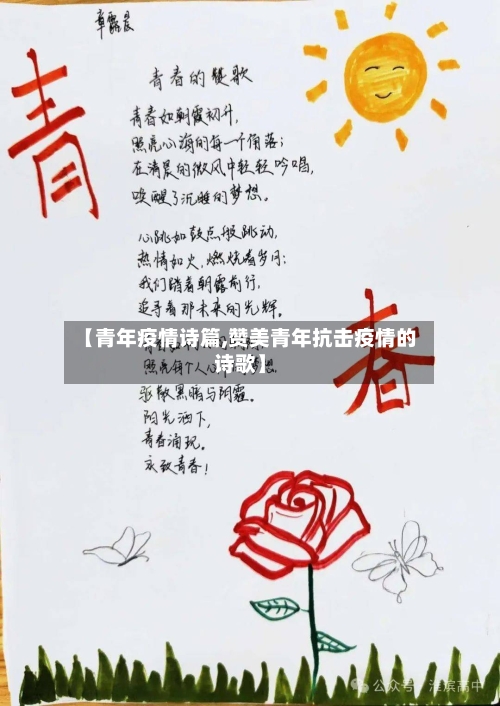 章露晨
青春的赞歌
青春
青春如朝霞初升，
照亮心海的每一个角落；
在清晨的微风中轻轻吟唱，
唤醒了沉睡的梦想。
心跳如鼓点般跳动，
热情如火，燃烧着岁月；
我们踏着朝露前行，
追寻着那未来的光辉。
【青年疫情诗篇,赞美青年抗击疫情的
诗歌】
照亮每个人心
驱散黑暗与阴霾。
阳光洒下，
青春涌现。
永致青春！
公众号·淮滨高中